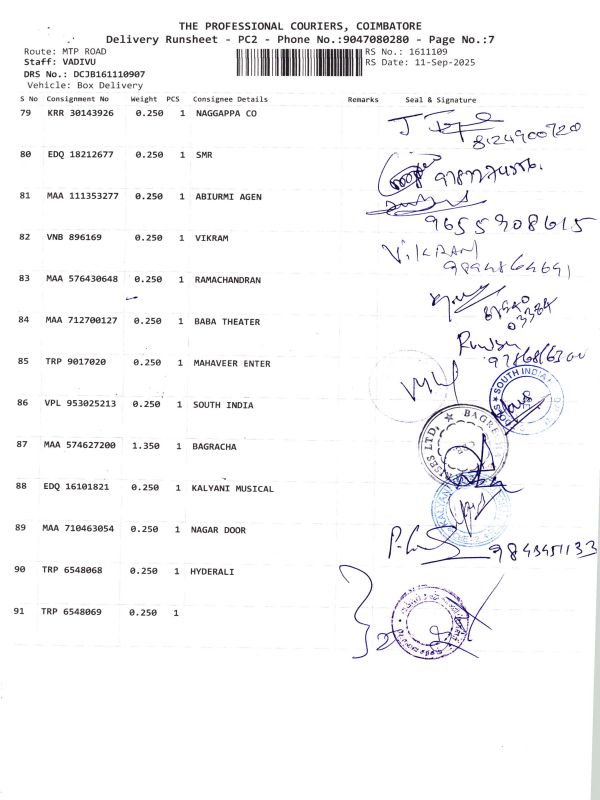 THE PROFESSIONAL COURIERS, COIMBATORE
Delivery Runsheet - PC2 - Phone No.:9047080280 - Page No.:7
Route: MTP ROAD
RS No.: 1611109
Staff: VADIVU
RS Date: 11-Sep-2025
DRS No.: DCJB161110907
Vehicle: Box Delivery
S No Consignment No Weight PCS Consignee Details Remarks Seal & Signature
79 KRR 30143926 0.250 1 NAGGAPPA CO
8124900720
80 EDQ 18212677 0.250 1 SMR
81 MAA 111353277 0.250 1 ABIURMI AGEN
9655908615
82 VNB 896169 0.250 1 VIKRAM
VIKRAM
9894864691
83 MAA 576430648 0.250 1 RAMACHANDRAN
84 MAA 712700127 0.250 1 BABA THEATER
85 TRP 9017020 0.250 1 MAHAVEER ENTER
86 VPL 953025213 0.250 1 SOUTH INDIA
SOUTH INDIA
87 MAA 574627200 1.350 1 BAGRACHA
88 EDQ 16101821 0.250 1 KALYANI MUSICAL
KALYANI
89 MAA 710463054 0.250 1 NAGAR DOOR
9843451133
90 TRP 6548068 0.250 1 HYDERALI
91 TRP 6548069 0.250 1